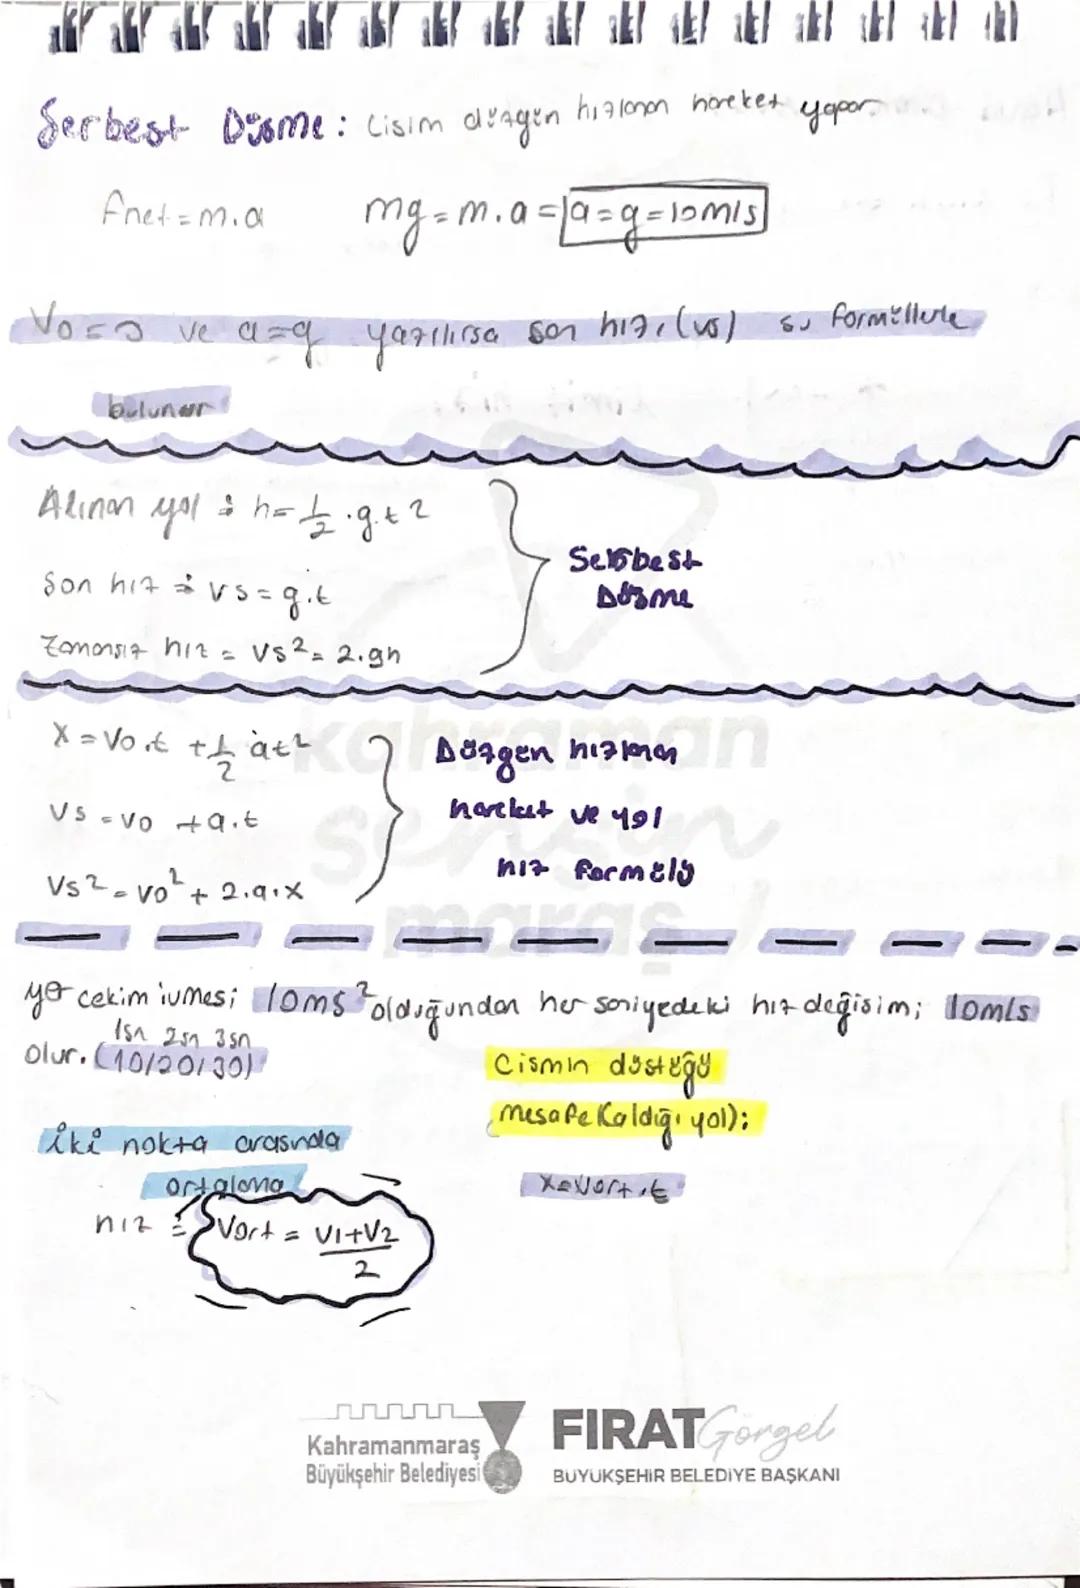 Serbest Düşme: Cisim düzgün hızlanan hareket yapar
Fnet = m.a mg = m.a = a = g = 10m/s
Vo = 0 ve a=g yazılırsa son hızı (vs) şu formüllerle
bulunur
Alınan yol : h = 1/2 .g.t2
Son hız : vs = g.t
Zamansız hız = vs² = 2.gh
Serbest
Düşme
x = Vo.t + 1/2 at²
Vs = vo + a.t
Vs² = vo² + 2.a.x
Düzgün hızlanan
hareket ve yol
hız formülü
yer çekim ivmesi 10ms² olduğundan her saniyedeki hız değişim; 10m/s
1sn 2sn 3sn
olur. (10/20/30)
Cismin düştüğü
mesafe (aldığı yol):
x=Vort.t
iki nokta arasında
ortalama
hız : Vort = V1+V2
2
kahraman
sensin
maraş
Kahramanmaraş
Büyükşehir Belediyesi
FIRAT Görgel
BÜYÜKŞEHİR BELEDİYE BAŞKANI